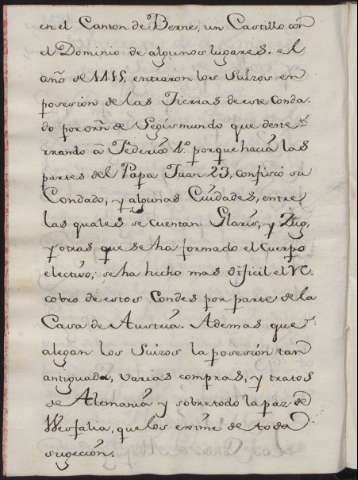 en el Canton de Berne, un Castillo con
el Dominio de algunos lugares. el
año de 1415, entraron los Suizos en
posesion de las Tierras de este Conda-
do por orn de Segismundo que deste-
rrando a Federico 4º porque hacia las
partes del Papa Juan 23, confiscó su
Condado, y algunas Ciudades, entre
las quales se cuentan Glaris, y Zug,
y otras que se ha formado el Cuerpo
electivo, se ha hecho mas dificil el re-
cobro de estos Condes por parte de la
Casa de Austria. Ademas que
alegan los Suizos la posesion tan
antiguada, varias compras, y tratos
de Alemania y sobre todo la paz de
Wesfalia, que los exime de toda
sugecion.